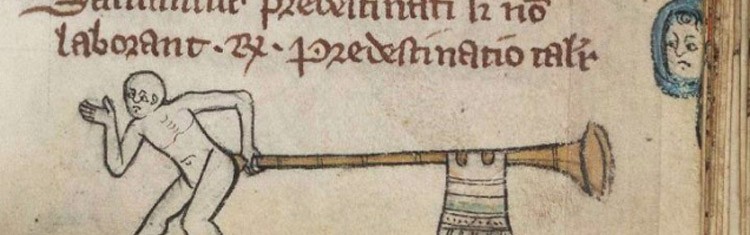 predestinati si nō
laborant · ℞ · Predestinatio